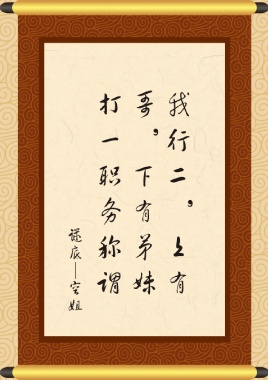 我行二，上有
哥，下有弟妹
打一职务称谓
谜底——空姐